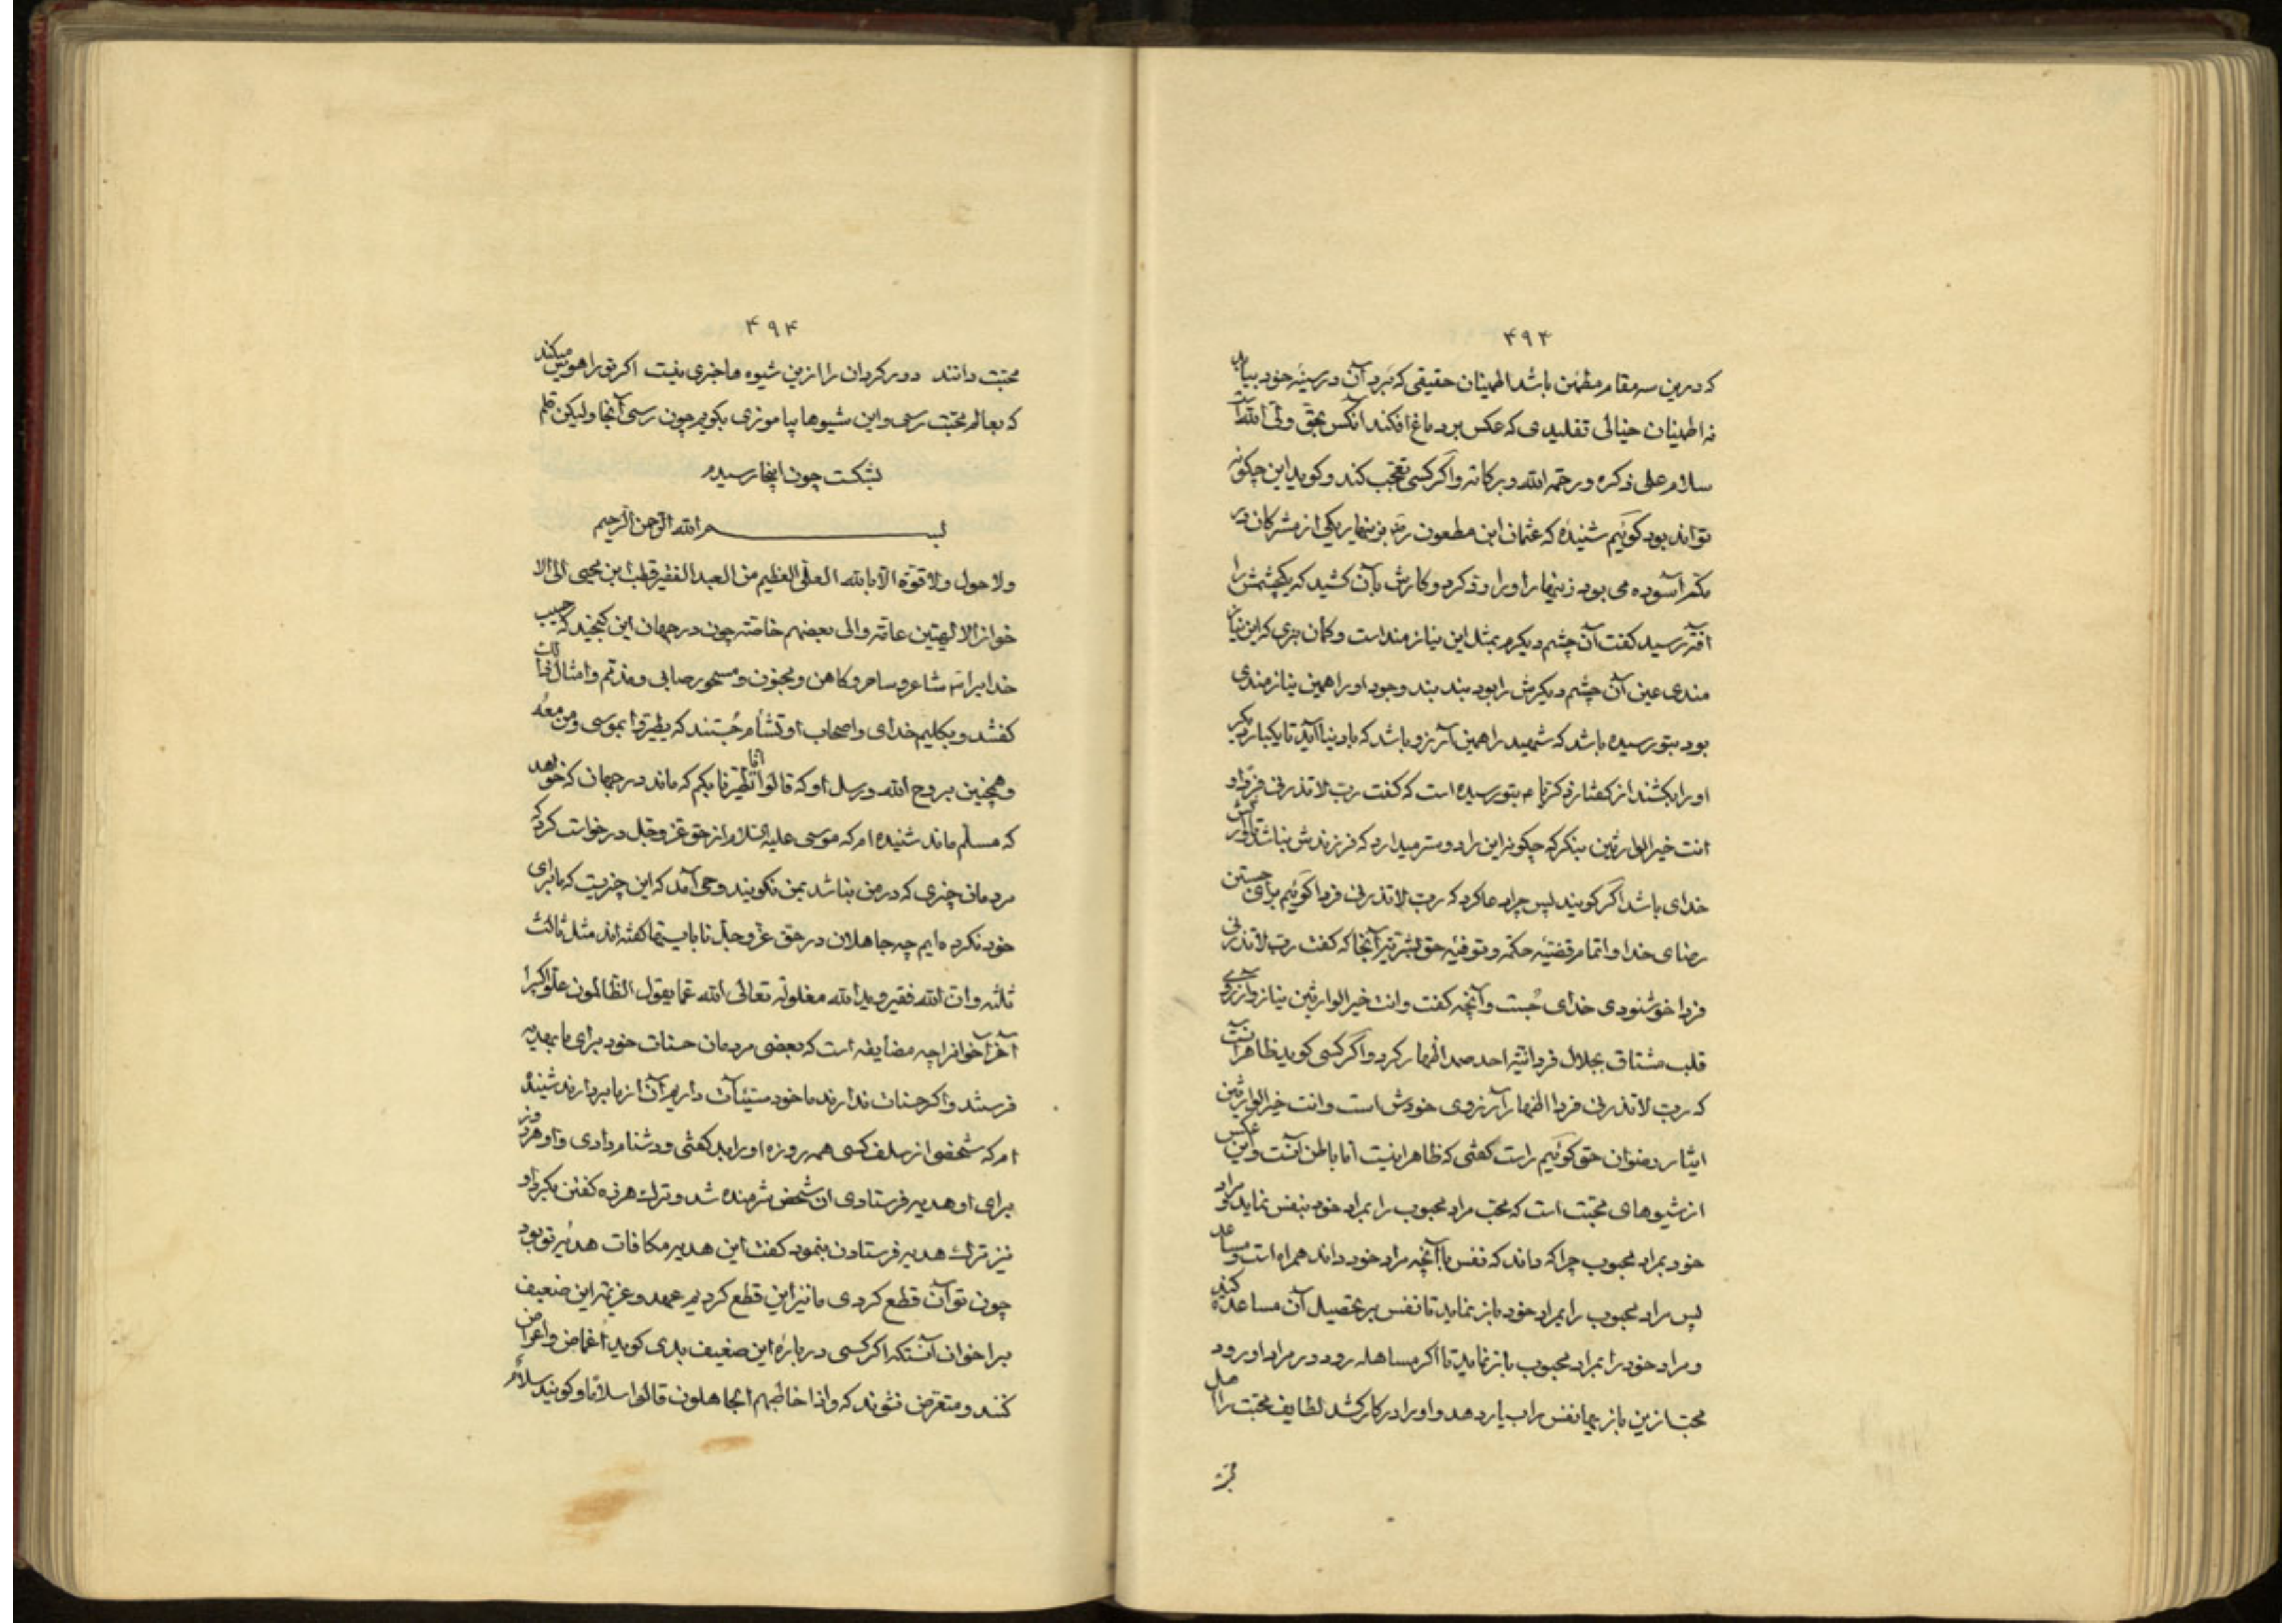 ۴۹۳
که درین سه مقام مطمئن باشد اطمینان حقیقی که برد آن در سینه خود بیابد
نه اطمینان خیالی تقلیدی که عکس بر دماغ افکند آنکس بحق ولی الله است
سلام علی ذکره و رحمة الله و برکاته و اگر کسی تعجب کند و کوید این چکونه
تواند بود کوئیم شنیدهٔ که عثمان ابن مطعون رضه بزینهار یکی از مشرکان در
مکه آسوده می بود زینهار او را رد کرد و کارش بآن کشید که یکچشمش را
آفتی رسید کفت آن چشم دیکرم بمثل این نیازمند است و کمان نبری که این نیاز
مندی عین آن چشم دیکرش را بود بند بند وجود او را همین نیازمندی
بود بتو رسیده باشد که شهید را همین آرزو باشد که با دنیا آید تا یکبار دیکر
او را بکشند از کفتار زکریا ع بتو رسیده است که کفت رب لا تذرنی فردا و
انت خیر الوارثین بنکر که چکونه این را دوستر میدارد که فرزندش نباشد
خدای باشد اگر کویند پس چرا دعا کرد که رب لا تذرنی فردا کوئیم برای جستن
رضای خدا و اتمام قضیهٔ حکمه و توفیهٔ حق بشریه آنجا که کفت رب لا تذرنی
فردا خوشنودی خدای جست و آنچه کفت و انت خیر الوارثین نیاز و آرزوی
قلب مشتاق بجلال فردانیه احد صمد اظهار کرد و اگر کسی کوید ظاهر آنست
که رب لا تذرنی فردا اظهار آرزوی خودش است و انت خیر الوارثین
ایثار رضوان حق کوئیم راست کفتی که ظاهر اینست اما باطن آنست و این عکس
از شیوهای محبت است که محب مراد محبوب را بمراد خود بنفس نماید و مراد
خود بمراد محبوب چرا که داند که نفس با آنچه مراد خود داند همراه است و مساعد
پس مراد محبوب را بمراد خود باز نماید تا نفس بر تحصیل آن مساعده کند
و مراد خود را بمراد محبوب باز نماید تا اکر مساهله رود در مراد او رود
محب ازین باز نفس را بیارد هد و او را در کار کشد لطایف محبت را اهل
۴۹۴
محبت دانند دور کردان را ازین شیوه ها خبری نیست اکر تو را هوس میکند
که بعالم محبت رسی و این شیوها بیاموزی بکویم چون رسی آنجا ولیکن قلم
بشکست چون اینجا رسیدم
بسم الله الرحمن الرحیم
ولا حول ولا قوة الا بالله العلی العظیم من العبد الفقیر قطب ابن محیی الی الا
خوان الالهیین عامة و الی بعضهم خاصة چون در جهان این کنجید که حبیب
خدایرا شاعر و ساحر و کاهن و مجنون و مسحور صابی و مذمم و امثال ذلک
کفتند و بکلیم خدای و اصحاب او تشأم جستند که یطیروا بموسی و من معه
و همچنین بروح الله و رسل او که قالوا انا تطیرنا بکم که ماند در جهان که خواهد
که مسلم ماند شنیده ام که موسی علیه السلام از حق عز و جل درخواست کرد که
مردمان چیزی که در من نباشد بمن نکویند وحی آمد که این چیزیست که ما برای
خود نکرده ایم چه جاهلان در حق عز و جل نابایستها کفته اند مثل ثالث
ثلثه و ان الله فقیر و ید الله مغلولة تعالی الله عما یقول الظالمون علوا کبیرا
آخر اخوانرا چه مضایقه است که بعضی مردمان حسنات خود برای ما بهدیه
فرستند و اکر حسنات ندارند ما خود سیئات داریم آن از ما بردارند شنیده
ام که شخصی از سلف کسی همه روزه او را بد کفتی و دشنام دادی و او هر روز
برای او هدیه فرستادی آن شخص شرمنده شد و ترک هرزه کفتن بکرد او
نیز ترک هدیه فرستادن بنمود کفت این هدیه مکافات هدیهٔ تو بود
چون تو آن قطع کردی ما نیز این قطع کردیم عهد و عزیمه این ضعیف
بر اخوان آنستکه اکر کسی در بارهٔ این ضعیف بدی کوید اغماض و اعراض
کنند و متعرض نشوند که و اذا خاطبهم الجاهلون قالوا سلاما و کویند سلام